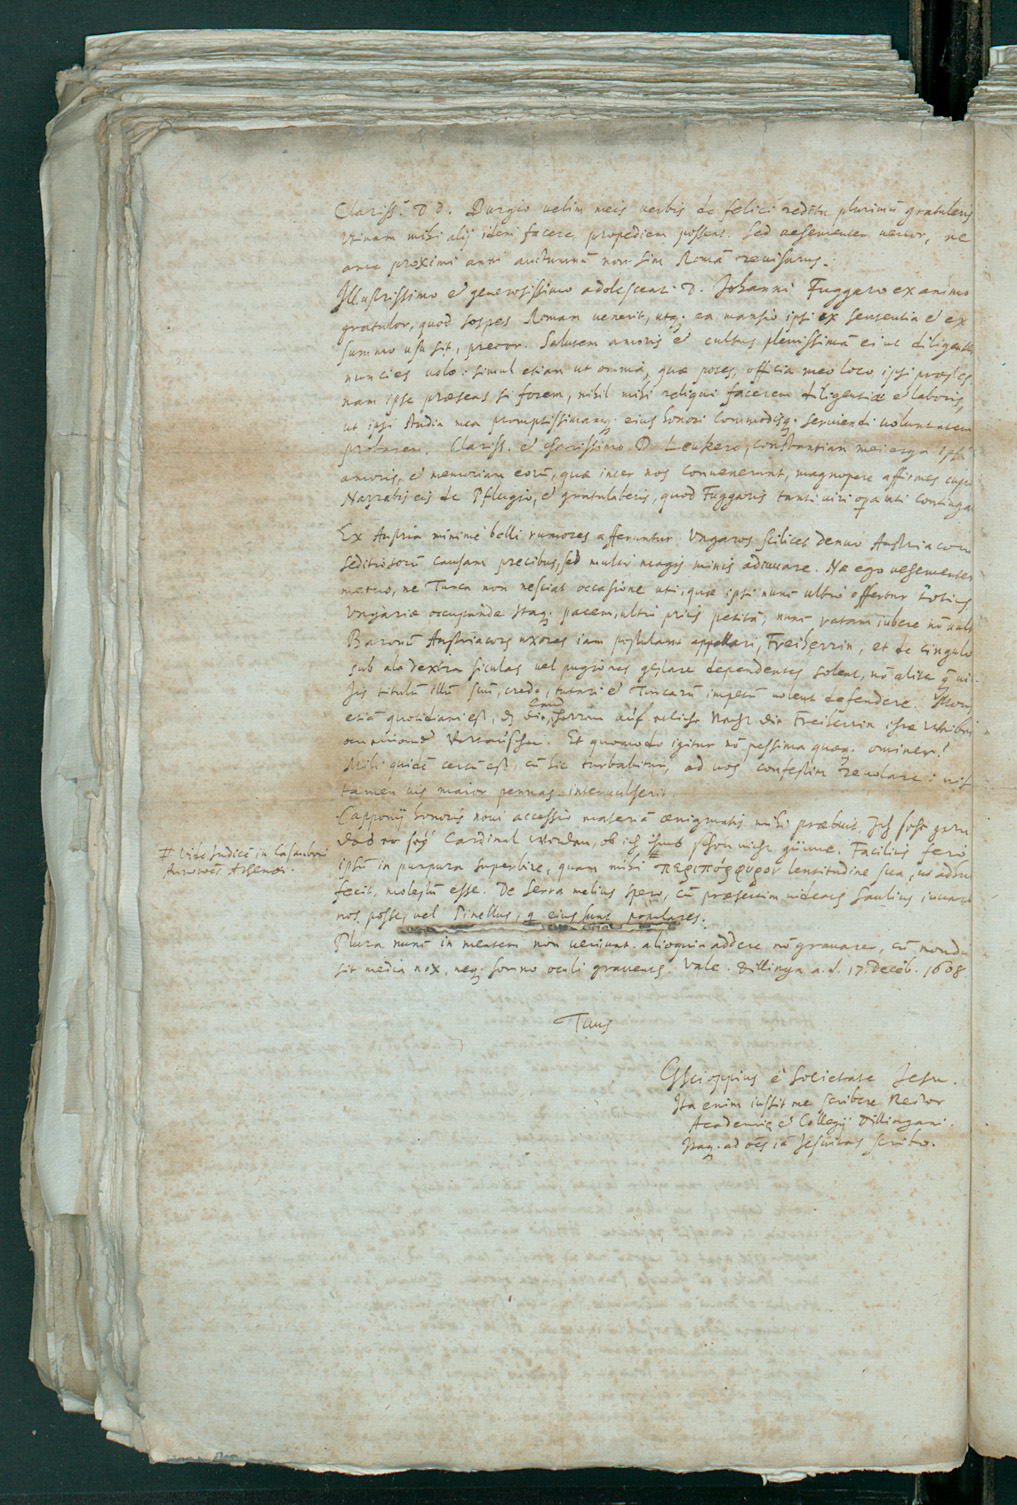 Clariss. D D. Durgio velim meis verbis de felici reditu plurimū gratuleris
Utinam mihi alij idem facere propediem possent. Sed vehementer vereor, ne
ante proximi anni autumnū non sim Romā revisurus.
Illustrissimo et generosissimo adolescenti D. Johanni Fuggaro ex animo
gratulor, quod sospes Romam venerit, utq; ea mansio ipsi ex sententia et ex
summo usu sit, precor. Salutem amoris et cultus plenissimā ei ut diligenter
nuncies volo: simul etiam ut omnia, quæ potes, officia meo loco ipsi præstes
nam ipse præsens si forem, nihil mihi reliqui facerem diligentiæ et laboris,
ut ipsi studia mea promptissimamq; eius honori commodisq; serviendi voluntatem
probarem. Clariss. et D Leukero, constantiam mei erga ipsū
amoris, et memoriam eorū, quæ inter nos convenerunt, magnopere affirmes
Narrabis ei de Pflugio, et gratulaberis, quod Fuggaris tanti viri opa uti continga
Ex Austria minime belli rumores afferuntur. Ungaros scilicet denuo Austriacorū
seditiosorū causam precibus, sed multo magis minis adiuvare. Næ ego vehementer
metuo, ne Turca non nesciat occasione uti, quæ ipsi nunc ultro offertur totius
Ungariæ occupandæ Itaq; pacem, ultro prius petitā, nunc ratam iubere nō vult
Baronū Austriacorū uxores iam postulant appellari, Freiherrin, et de cingulo
sub ala dextra siculas vel pugiones gestare dependentes solent, nō aliter q̄
Jis titulū illū suū, credo, tutari et Turcarū impetū volent defendere.
etiā quotidiani est, die Herrn auf Nacht die Freiherrin ihre
Et quomodo igitur nō pessima quæq; ominer?
Mihi quidē certū est, cū hic turbabitur, ad vos confestim revolare: nisi
tamen vis maior pennas intervulserit.
Capponij honoris novi accessio materiā ænigmatis mihi præbuit. Jch sehe gern
das er sey Cardinal worden, ob ich ihms schon nicht günne. Facilius fero
ipsū in purpura superbire, quam mihi # περιπόρφυρον lentitudine sua,
fecit, molestū esse. De Serra melius spero, cū præsertim videas Saulius iuvare
nos posse, vel Pinellus, q̄ eius sunt populares.
Plura nunc in mentem non veniunt. alioquin addere nō gravarer, cū nondū
sit media nox, neq; somno oculi graventr. Vale. Dillinga a. d. 17. Decēb. 1608
# Vide Indicē in Casauboni
Tuus
GScioppius è Societate Jesu.
Ita enim iussit me scribere Rector
Academiæ et Collegij Dillingani.
Itaq; ad oēs iā Jesuitas scribo.